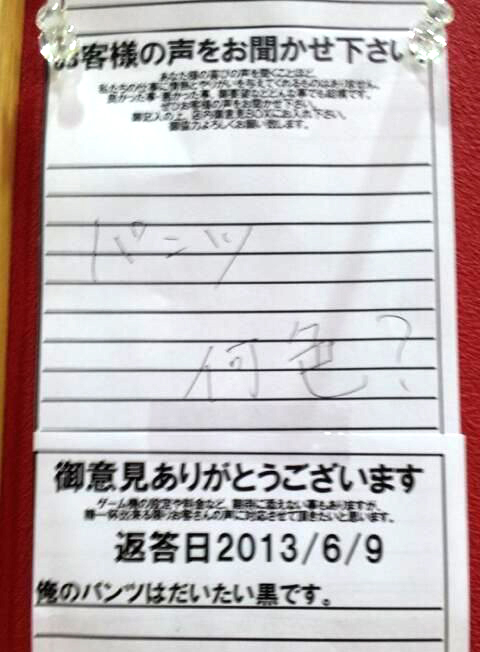 お客様の声をお聞かせ下さい
あなた様の喜びの声を聞くことほど、
私たちの仕事に情熱とやりがいを与えてくれるものはありません。
良かった事・悪かった事、御要望などどんな事でも結構です。
ぜひお客様の声をお聞かせ下さい。
御記入の上、店内御意見BOXにお入れ下さい。
御協力よろしくお願い致します。
パンツ
何色?
御意見ありがとうございます
ゲーム機の設定や料金など、期待に添えない事もありますが、
精一杯出来る限りお客さんの声に対応させて頂きたいと思います。
返答日2013/6/9
俺のパンツはだいたい黒です。